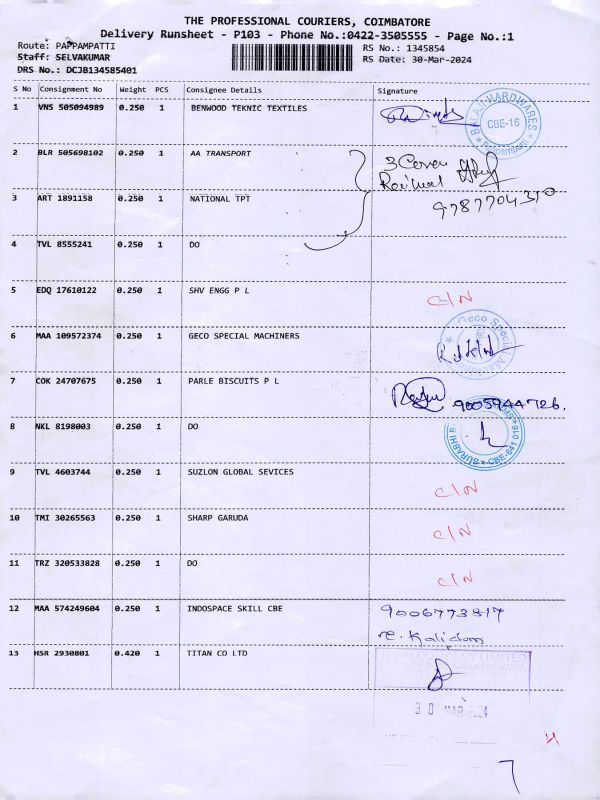 THE PROFESSIONAL COURIERS, COIMBATORE
Delivery Runsheet - P103 - Phone No.:0422-3505555 - Page No.:1
Route: PAPPAMPATTI
RS No.: 1345854
Staff: SELVAKUMAR
RS Date: 30-Mar-2024
DRS No.: DCJB134585401
S No Consignment No Weight PCS Consignee Details Signature
1 VNS 505094989 0.250 1 BENWOOD TEKNIC TEXTILES
BALAJI HARDWARES
CBE-16
2 BLR 505698102 0.250 1 AA TRANSPORT
3 Cover
3 ART 1891158 0.250 1 NATIONAL TPT
9787704310
4 TVL 8555241 0.250 1 DO
5 EDQ 17610122 0.250 1 SHV ENGG P L
C/N
6 MAA 109572374 0.250 1 GECO SPECIAL MACHINERS
Geco Special
7 COK 24707675 0.250 1 PARLE BISCUITS P L
9005944726.
8 NKL 8198003 0.250 1 DO
CBE-641 016
9 TVL 4603744 0.250 1 SUZLON GLOBAL SEVICES
C/N
10 TMI 30265563 0.250 1 SHARP GARUDA
C/N
11 TRZ 320533828 0.250 1 DO
C/N
12 MAA 574249604 0.250 1 INDOSPACE SKILL CBE
9006773817
13 HSR 2930801 0.420 1 TITAN CO LTD
30 MAR 2024